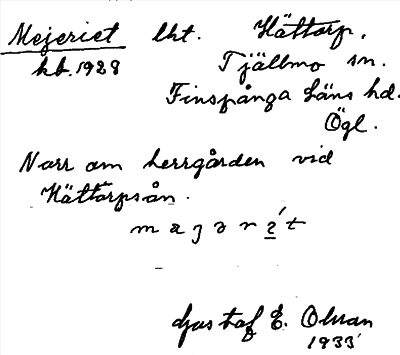 Mejeriet lht. Hättorp,
kb. 1928 Tjällmo sn.
Finspånga läns hd.
Ögl.
Norr om herrgården vid
Hättorpsån.
Gustaf E. Olsson
1933